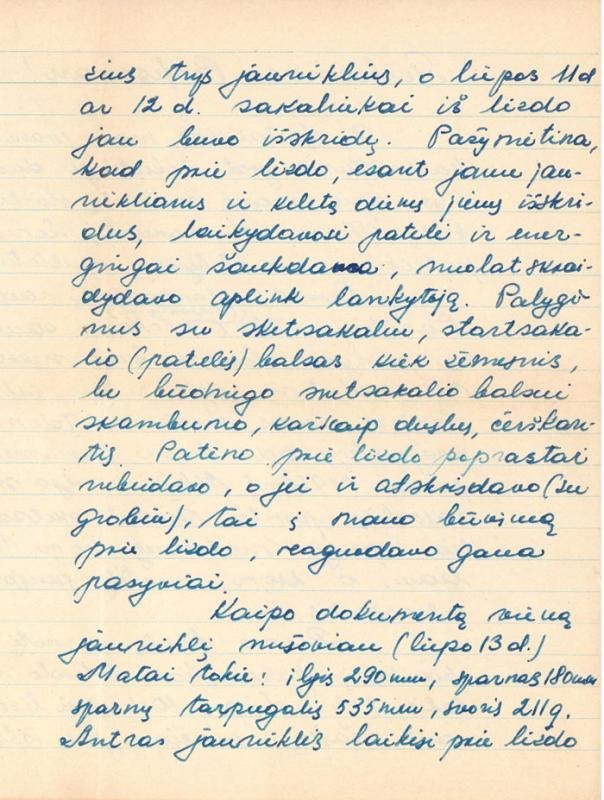 čius trys jauniklius, o liepos 11d
ar 12 d. sakaliukai iš lizdo
jau buvo išskridę. Pažymėtina,
kad prie lizdo, esant jame jau-
nikliams ir keletą dienų jiems išskri-
dus, laikydavosi patelė ir ener-
gingai šaukdama, nuolat skrai-
dydavo aplink lankytoją. Palygi-
nus su sketsakaliu, startsaka-
lio (patelės) balsas kiek žemesnis,
be būdingo sketsakalio balsui
skambumo, kažkaip duslus, čerškan-
tis. Patino prie lizdo paprastai
nebūdavo, o jei ir atskrisdavo (su
grobiu), tai į mano buvimą
prie lizdo, reaguodavo gana
pasyviai.
Kaipo dokumentą vieną
jauniklį nušoviau (liepo 13 d.)
Matai tokie: ilgis 290mm, sparnas 180mm
sparnų tarpugalis 535mm, svoris 211g.
Antras jauniklis laikėsi prie lizdo